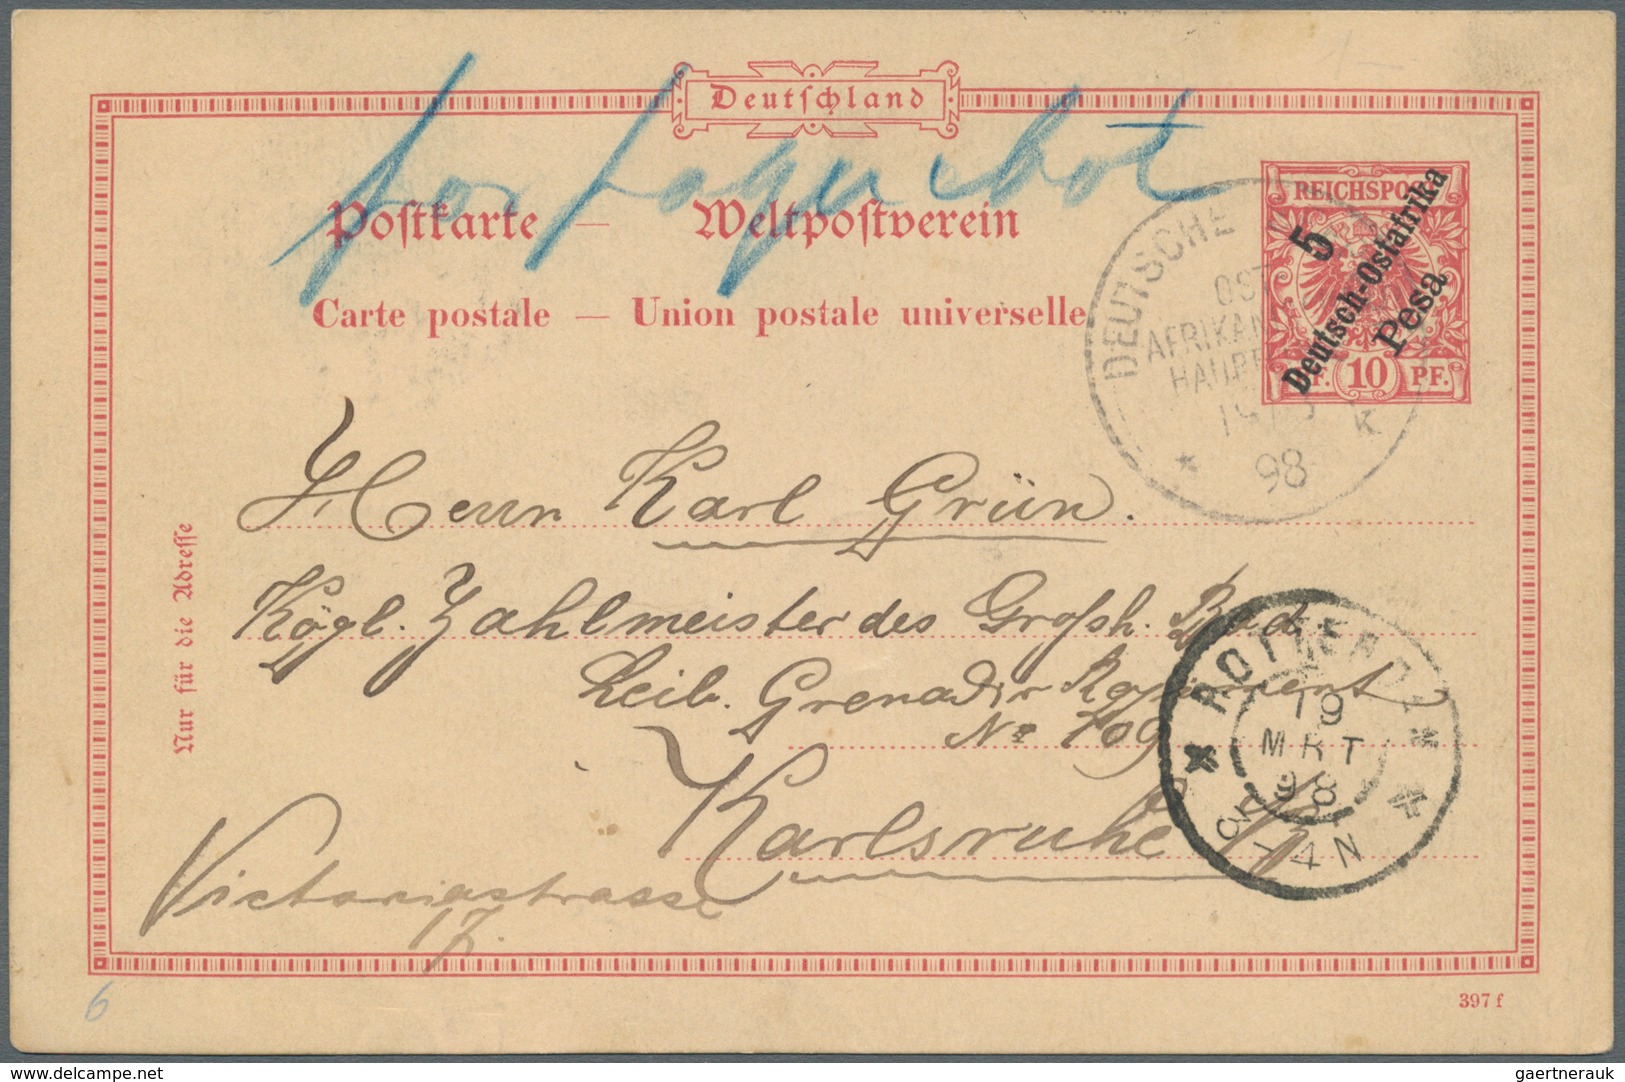 Deutschland
par paquebot
Postkarte — Weltpostverein
Carte postale — Union postale universelle
REICHSPOST
5
Deutsch-Ostafrika
Pesa
10 PF.
DEUTSCHE
OST
AFRIKAN
HAUPT
98
K
Herrn Karl Grün.
Kögl. Zahlmeister des Grosh. Bad.
Leib. Grenadir Regiment
No 109
Karlsruhe i/B
Victoriastrasse
17.
Nur für die Adresse
ROTTERDAM
19
MRT
98
3-4N
6
397 f
www.delcampe.net
gaertnerauk